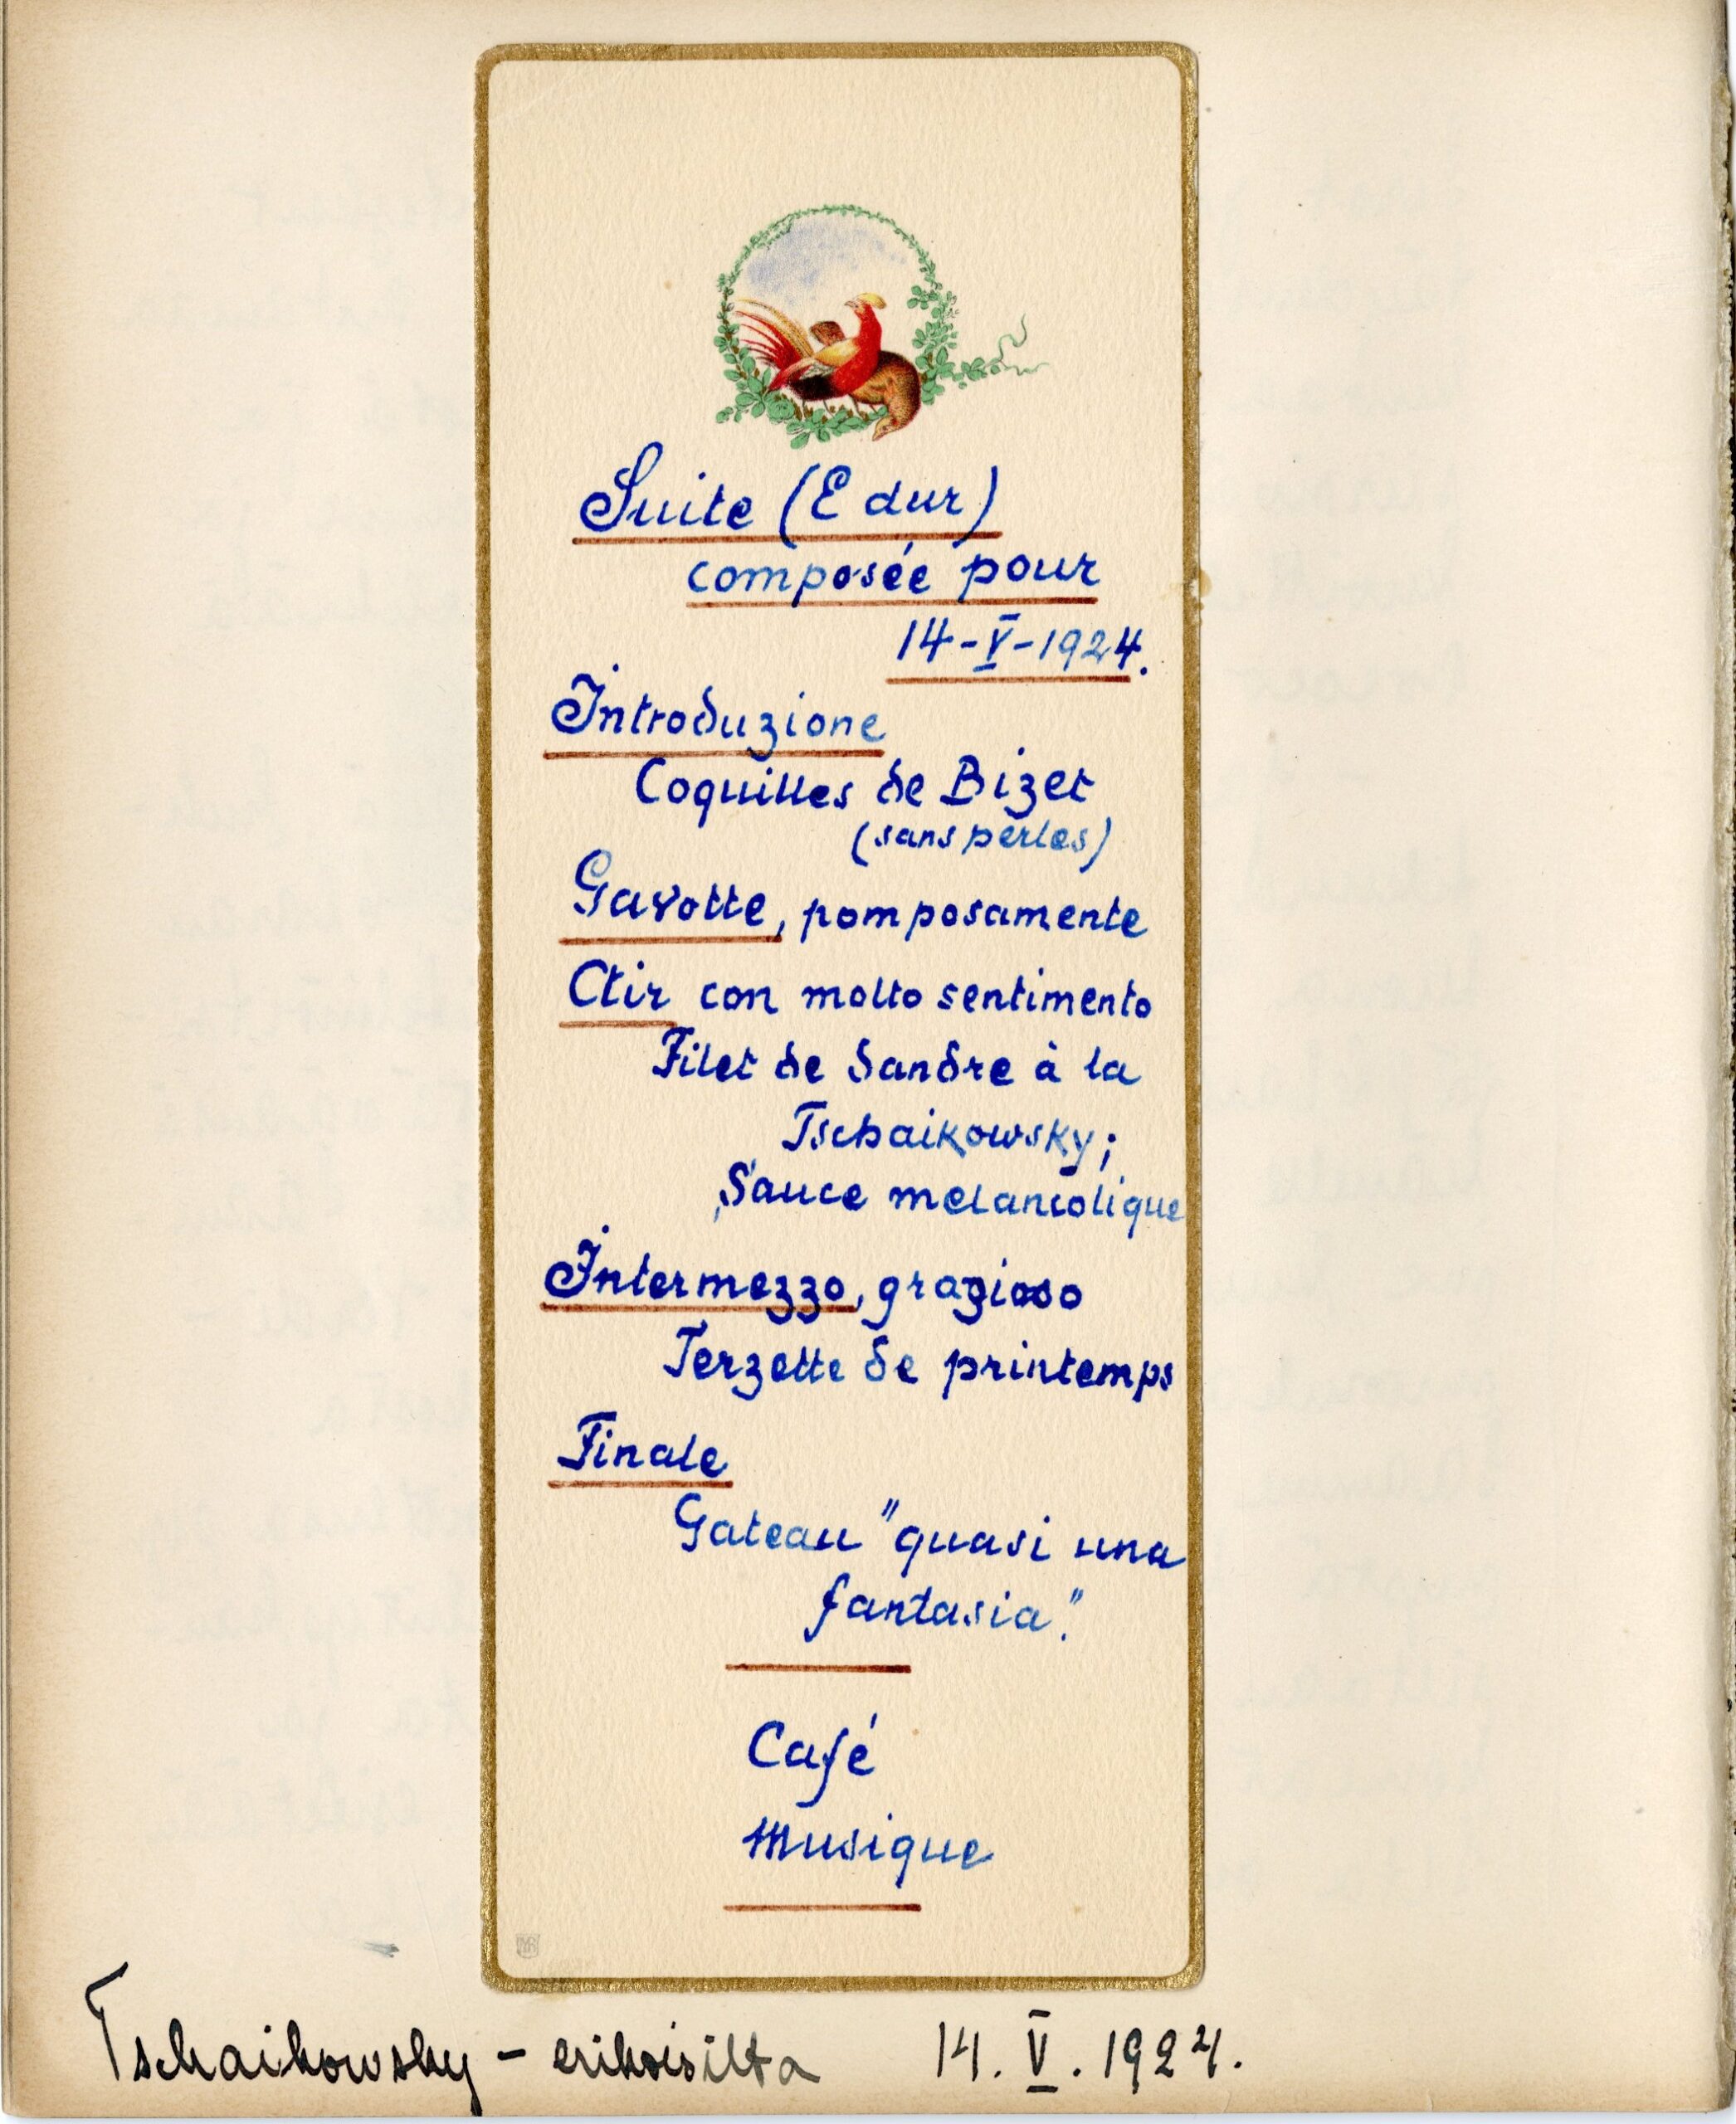 Suite (E dur)
composée pour
14-V-1924.
Introduzione
Coquilles de Bizet
(sans perles)
Gavotte, pomposamente
Air con molto sentimento
Filet de Sandre à la
Tschaikowsky;
Sauce melancolique
Intermezzo, grazioso
Terzette de printemps
Finale
Gateau "quasi una
fantasia".
Café
Musique
Tschaikowsky - erikoisilta 14. V. 1924.